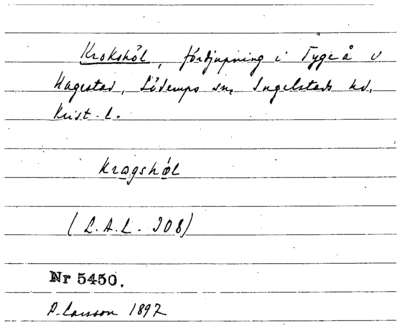 Krokshöl, fördjupning i Tyge å v
Hagestad, Löderups sn, Ingelstads hd,
Krist. l.
Krogshøl
(L.A.L. 308)
Nr 5450.
P. Larsson 1897